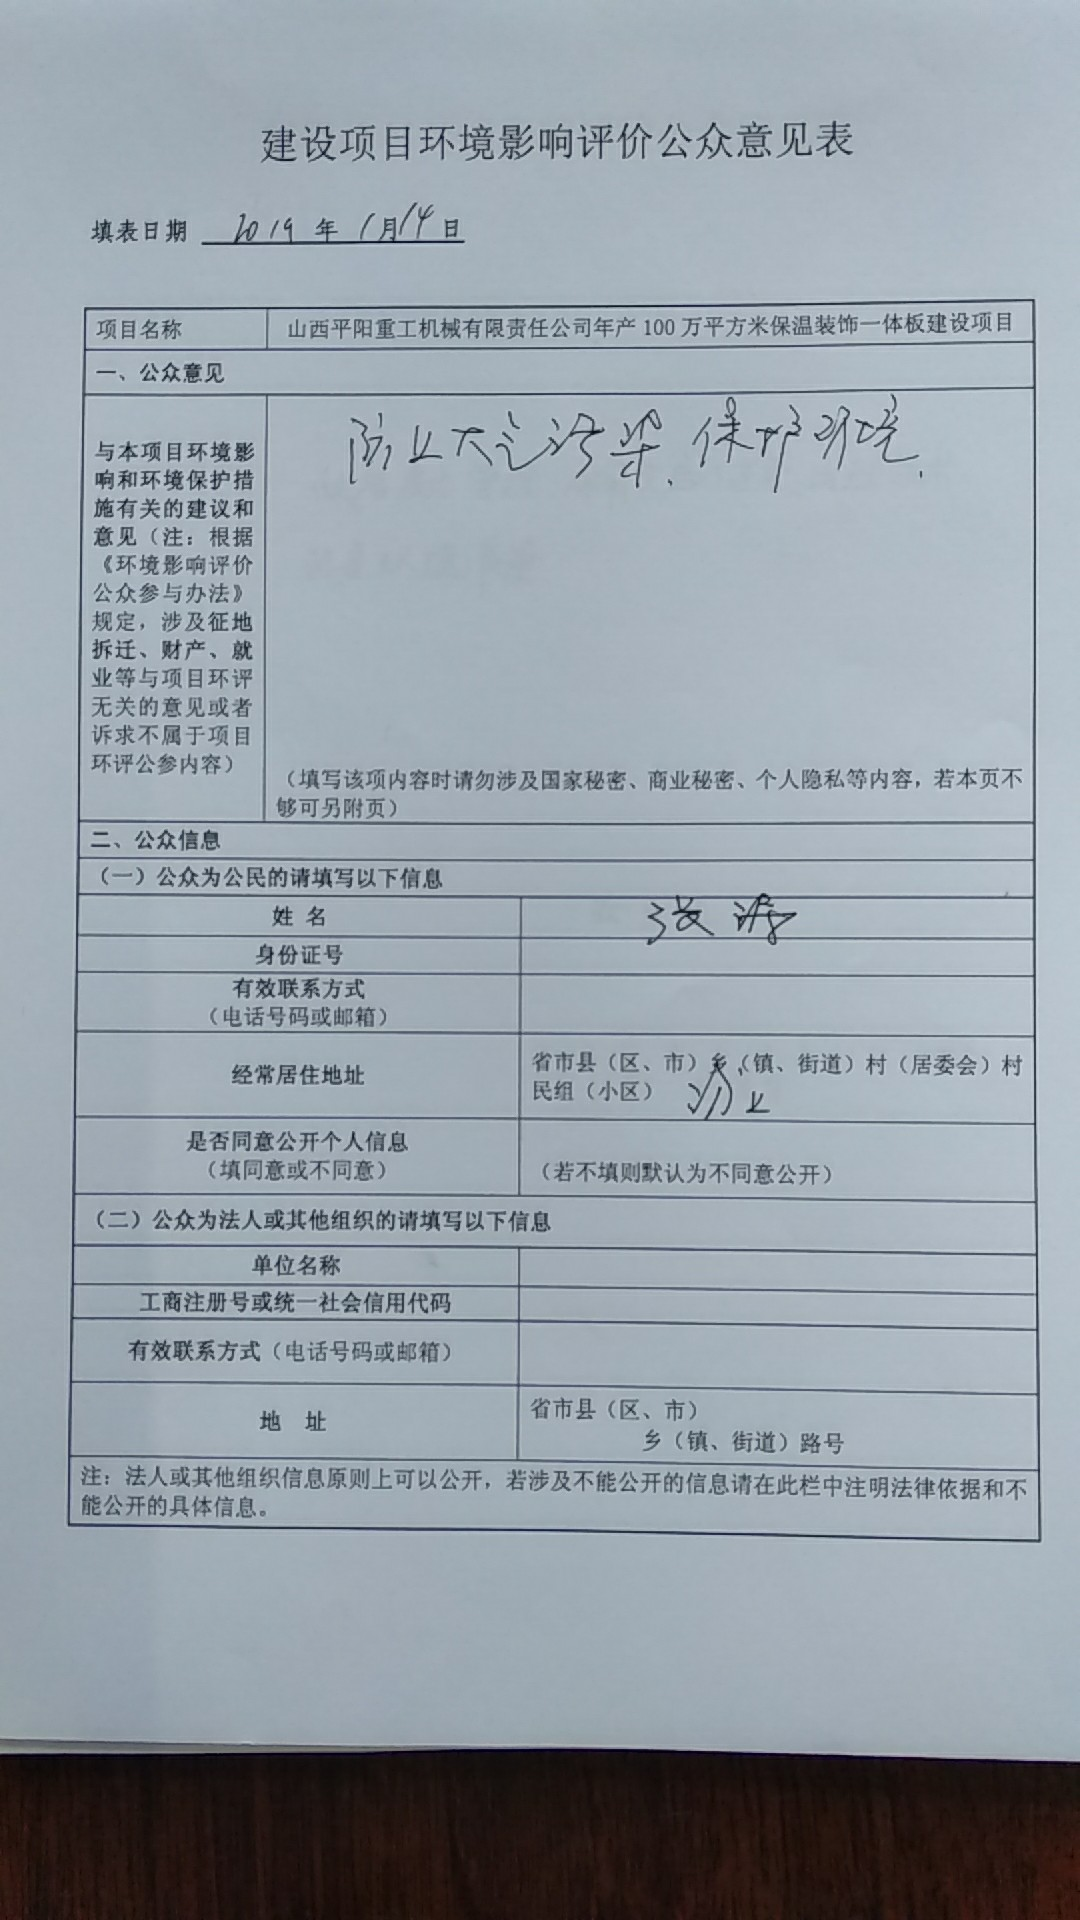 建设项目环境影响评价公众意见表
填表日期 2019 年 1月14日
项目名称 山西平阳重工机械有限责任公司年产 100 万平方米保温装饰一体板建设项目
一、公众意见
与本项目环境影
响和环境保护措
施有关的建议和
意见（注：根据
《环境影响评价
公众参与办法》
规定，涉及征地
拆迁、财产、就
业等与项目环评
无关的意见或者
诉求不属于项目
环评公参内容）
防止大气污染.保护环境.
（填写该项内容时请勿涉及国家秘密、商业秘密、个人隐私等内容，若本页不
够可另附页）
二、公众信息
（一）公众为公民的请填写以下信息
姓 名 张
身份证号
有效联系方式
（电话号码或邮箱）
经常居住地址
省市县（区、市）乡（镇、街道）村（居委会）村
民组（小区）
是否同意公开个人信息
（填同意或不同意）
（若不填则默认为不同意公开）
（二）公众为法人或其他组织的请填写以下信息
单位名称
工商注册号或统一社会信用代码
有效联系方式（电话号码或邮箱）
地 址
省市县（区、市）
乡（镇、街道）路号
注：法人或其他组织信息原则上可以公开，若涉及不能公开的信息请在此栏中注明法律依据和不
能公开的具体信息。